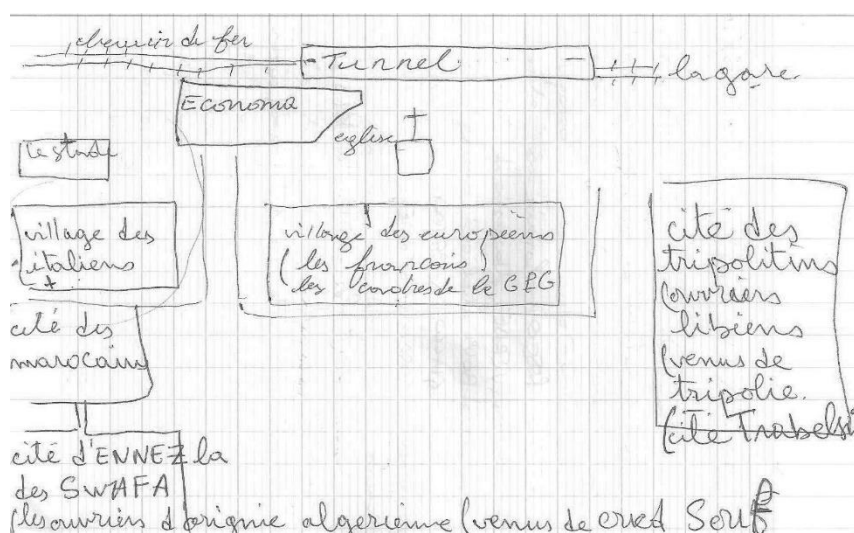 chemin de fer
Tunnel
la gare
Economa
eglise
le stade
village des
italiens
village des européens
(les francais)
les cadres de la
cité des
tripolitins
(ouvriers
libiens
(venus de
tripolie.
(cité Trabelsi
cité des
marocains
cité d'ENNEZla
des SWAFA
(les ouvriers d'orignie algerienne (venus de oued Souf